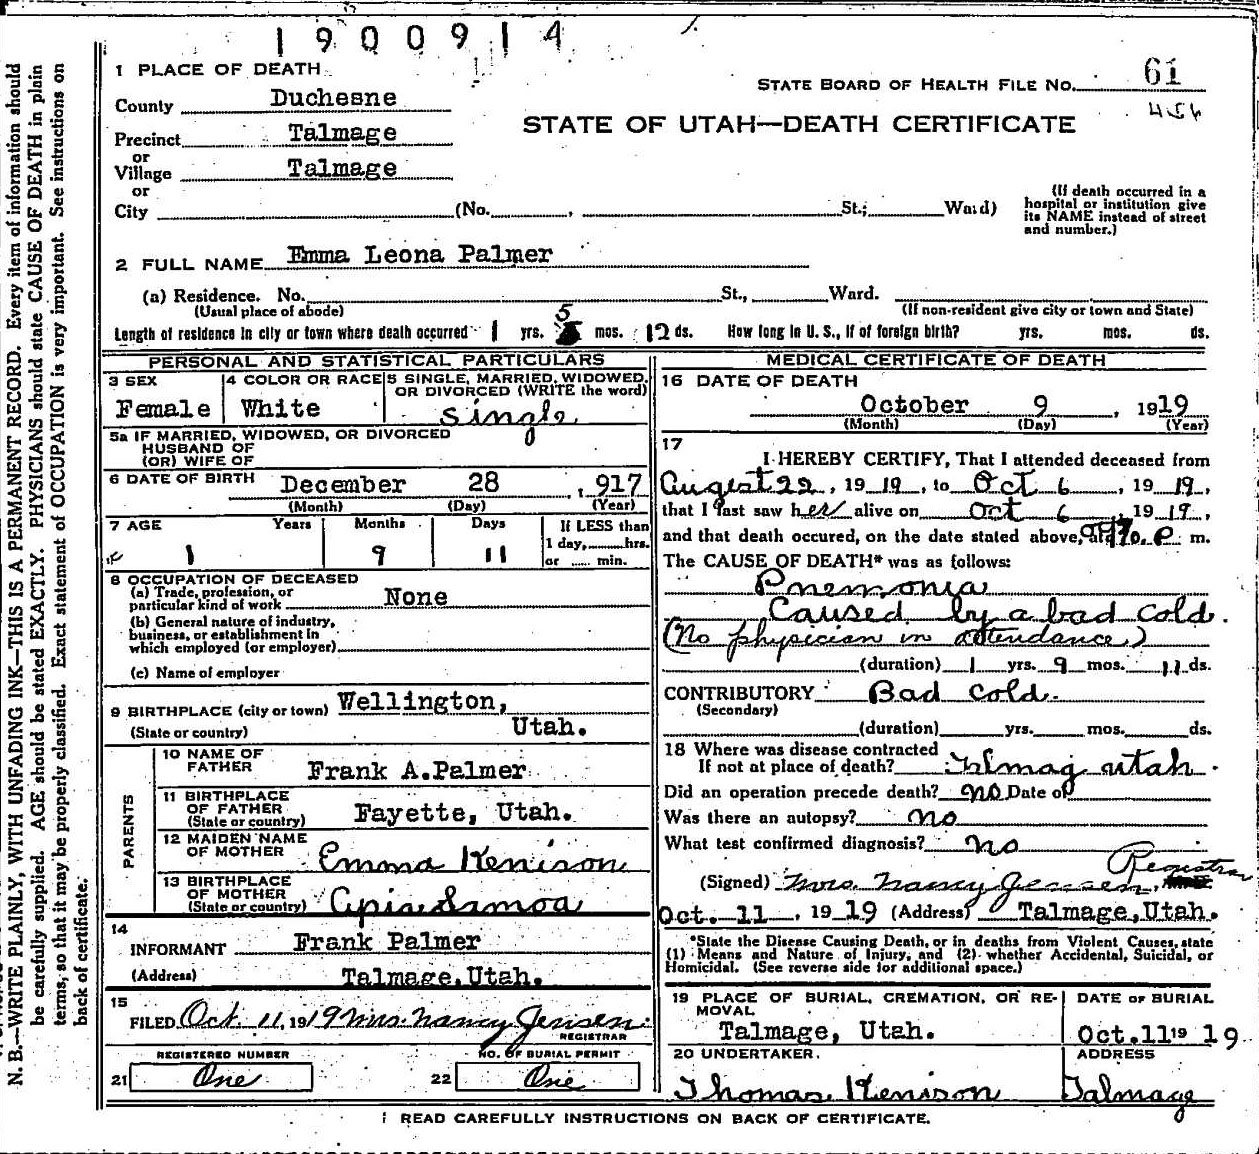 1900914
1 PLACE OF DEATH
STATE BOARD OF HEALTH FILE No. 61
456
County Duchesne
STATE OF UTAH—DEATH CERTIFICATE
Precinct Talmage
or
Village Talmage
or
City (No. , St.; Ward)
(If death occurred in a
hospital or institution give
its NAME instead of street
and number.)
2 FULL NAME Emma Leona Palmer
(a) Residence. No. St., Ward.
(Usual place of abode)
(If non-resident give city or town and State)
Length of residence in city or town where death occurred 1 yrs. 5 mos. 12 ds. How long in U. S., if of foreign birth? yrs. mos. ds.
PERSONAL AND STATISTICAL PARTICULARS
3 SEX
Female
4 COLOR OR RACE
White
5 SINGLE, MARRIED, WIDOWED,
OR DIVORCED (WRITE the word)
single
5a IF MARRIED, WIDOWED, OR DIVORCED
HUSBAND OF
(OR) WIFE OF
6 DATE OF BIRTH December 28, 917
(Month) (Day) (Year)
7 AGE Years Months Days If LESS than
1 day, hrs.
or min.
1 9 11
8 OCCUPATION OF DECEASED
(a) Trade, profession, or
particular kind of work None
(b) General nature of industry,
business, or establishment in
which employed (or employer)
(c) Name of employer
9 BIRTHPLACE (city or town) Wellington,
(State or country) Utah.
PARENTS
10 NAME OF
FATHER Frank A.Palmer
11 BIRTHPLACE
OF FATHER
(State or country) Fayette, Utah.
12 MAIDEN NAME
OF MOTHER Emma Kenison
13 BIRTHPLACE
OF MOTHER
(State or country) Apia Samoa
14
INFORMANT Frank Palmer
(Address) Talmage,Utah.
15
FILED Oct. 11, 1919 Mrs. Nancy Jensen
REGISTRAR
REGISTERED NUMBER
21 One
NO. OF BURIAL PERMIT
22 One
MEDICAL CERTIFICATE OF DEATH
16 DATE OF DEATH
October 9, 1919
(Month) (Day) (Year)
17
I HEREBY CERTIFY, That I attended deceased from
August 22, 1919, to Oct 6, 1919,
that I last saw her alive on Oct 6, 1919,
and that death occured, on the date stated above, at P m.
The CAUSE OF DEATH* was as follows:
Pnemonia
Caused by a bad cold.
(No physician in attendance)
(duration) 1 yrs. 9 mos. 11 ds.
CONTRIBUTORY Bad Cold.
(Secondary)
(duration) yrs. mos. ds.
18 Where was disease contracted
If not at place of death? Talmag utah.
Did an operation precede death? no Date of
Was there an autopsy? no
What test confirmed diagnosis? no
Registrar
(Signed) Mrs. Nancy Jensen,
Oct. 11, 1919 (Address) Talmage,Utah.
*State the Disease Causing Death, or in deaths from Violent Causes, state
(1) Means and Nature of Injury, and (2) whether Accidental, Suicidal, or
Homicidal. (See reverse side for additional space.)
19 PLACE OF BURIAL, CREMATION, OR RE-
MOVAL
Talmage, Utah.
DATE OF BURIAL
Oct.11 19 19
20 UNDERTAKER.
Thomas Kenison
ADDRESS
Talmage
READ CAREFULLY INSTRUCTIONS ON BACK OF CERTIFICATE.
N. B.—WRITE PLAINLY, WITH UNFADING INK—THIS IS A PERMANENT RECORD. Every item of information should
be carefully supplied. AGE should be stated EXACTLY. PHYSICIANS should state CAUSE OF DEATH in plain
terms, so that it may be properly classified. Exact statement of OCCUPATION is very important. See instructions on
back of certificate.